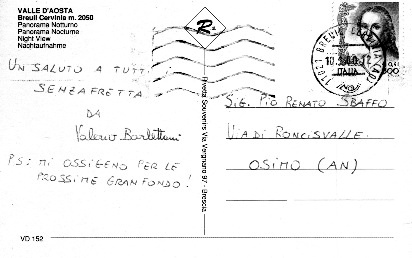 VALLE D'AOSTA
Breuil Cervinia m. 2050
Panorama Notturno
Panorama Nocturne
Night View
Nachtaufnahme
R
UN SALUTO A TUTTI
SENZAFRETTA
DA
Valerio Barlettani
PS: MI OSSIGENO PER LE
PROSSIME GRANFONDO!
VD 152
Riveta Souvenirs Via Vergnano 97 - Brescia
ITALIA
SIG. PIO RENATO SBAFFO
VIA DI RONCISVALLE
OSIMO (AN)